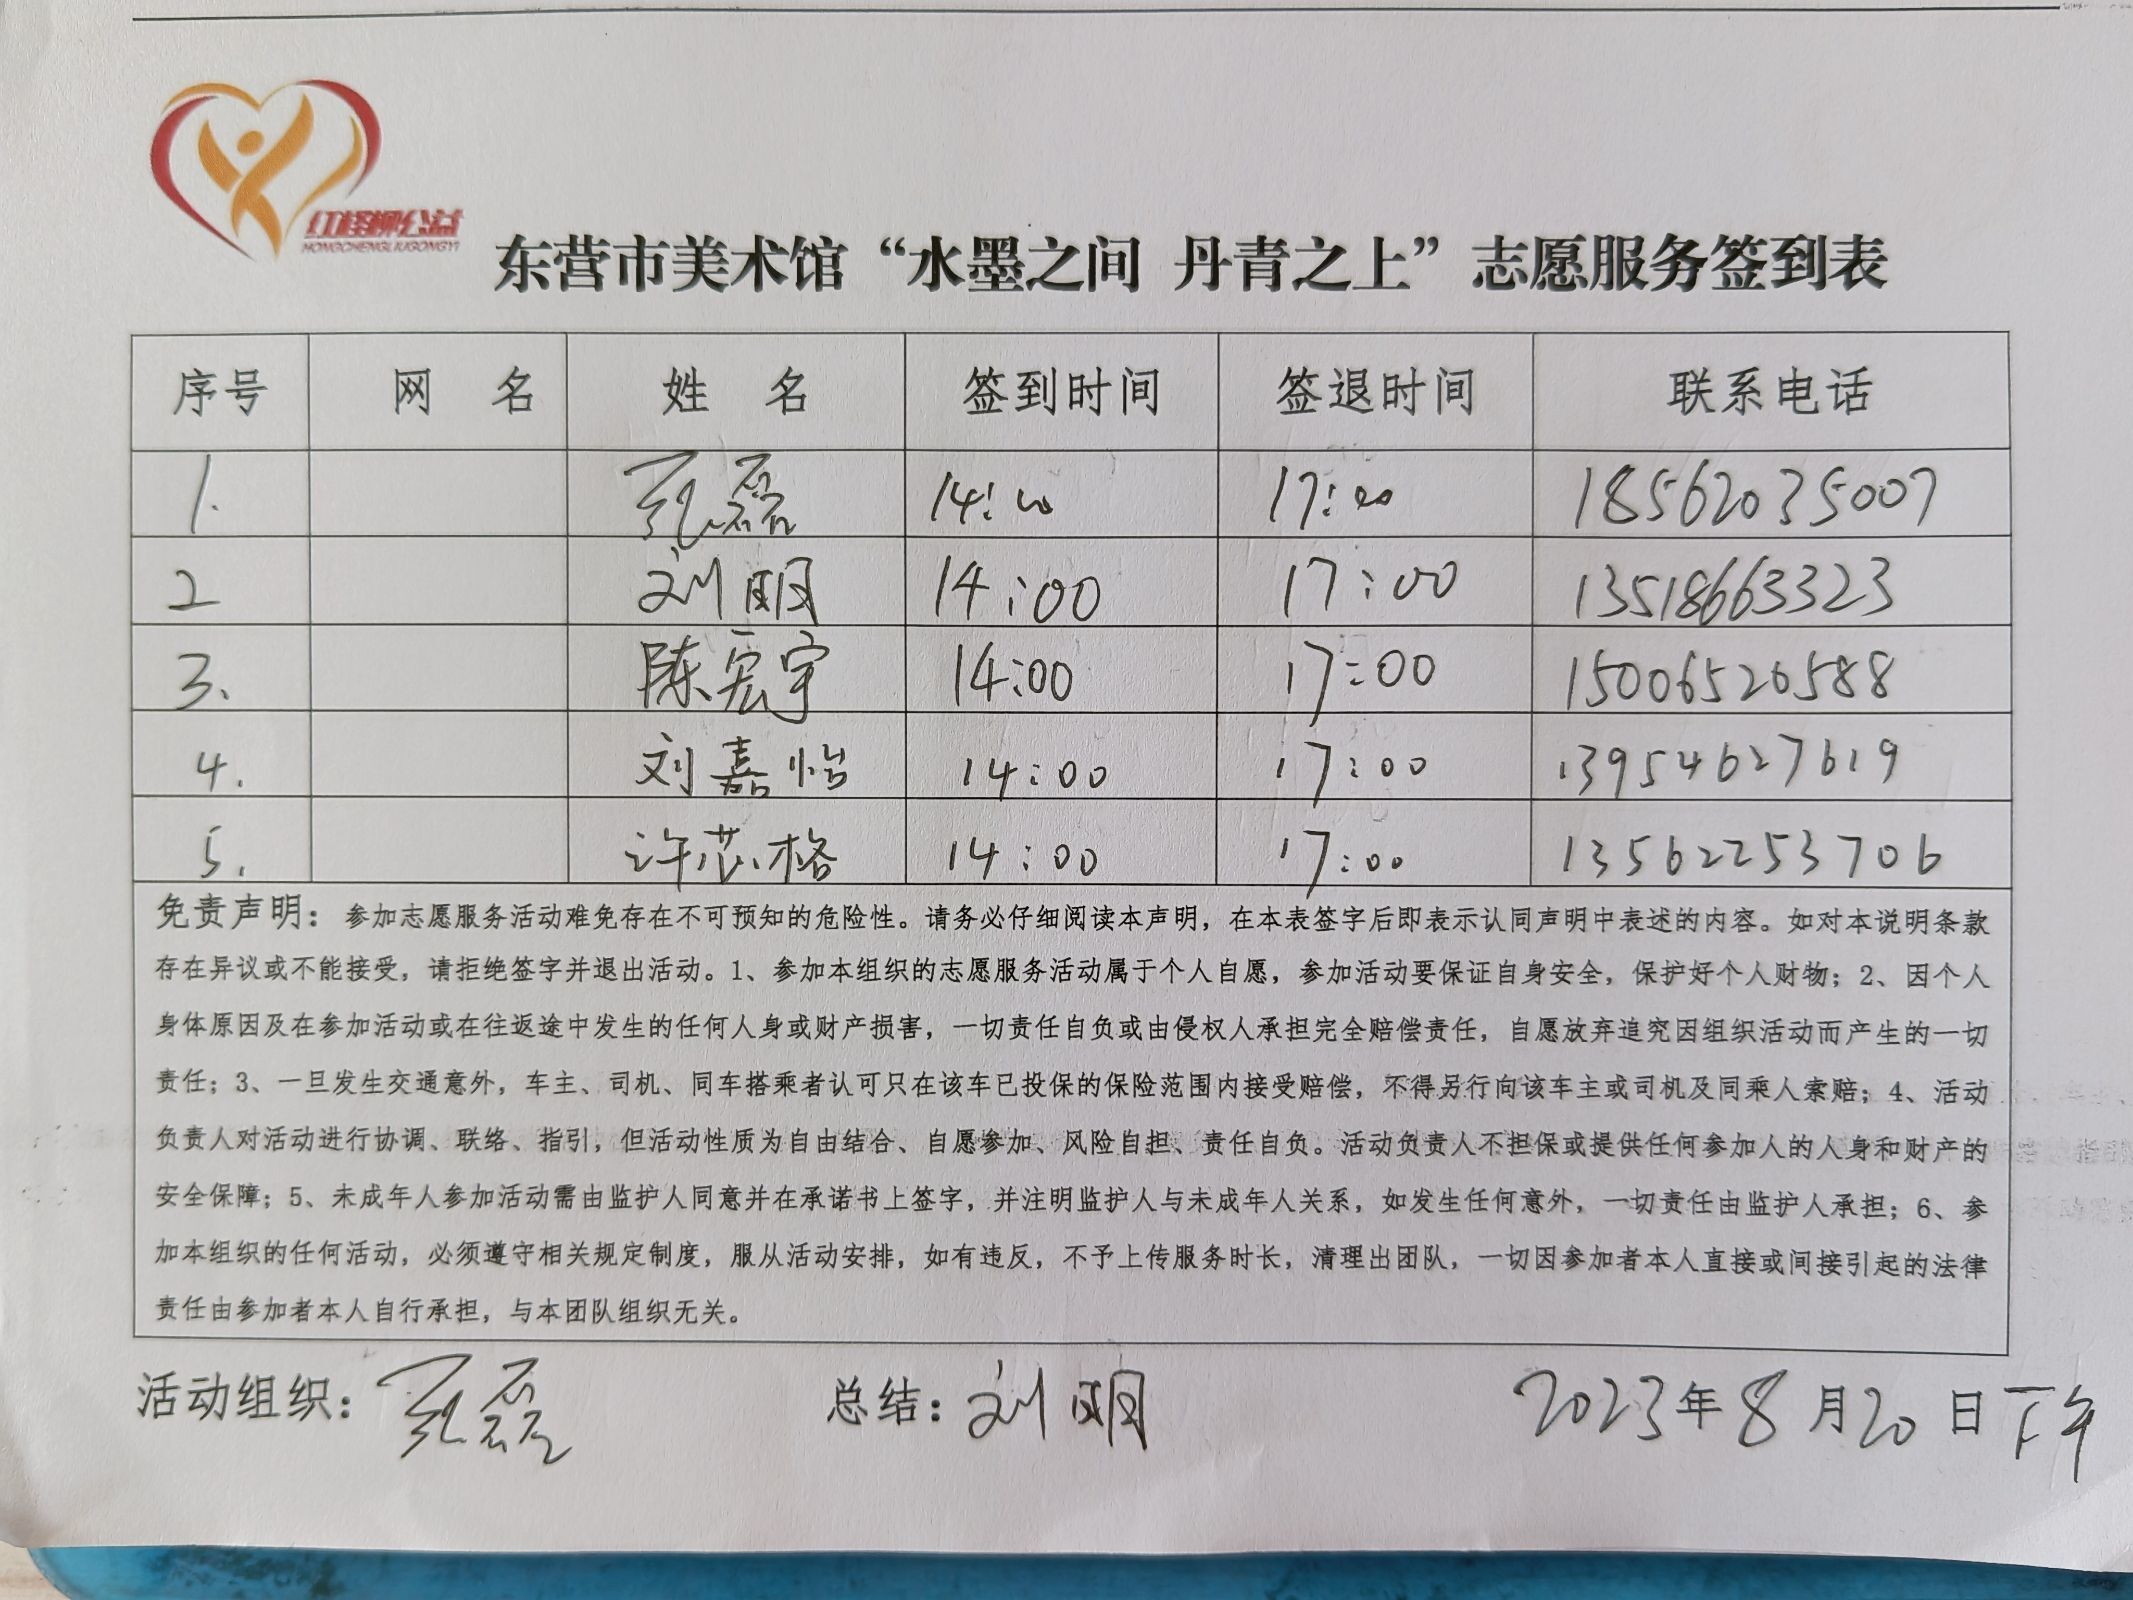 红柽柳公益
HONGCHENGLIUGONGYI
东营市美术馆“水墨之间 丹青之上”志愿服务签到表
序号 网 名 姓 名 签到时间 签退时间 联系电话
1. 张磊 14:00 17:00 18562035007
2 刘明 14:00 17:00 13518663323
3. 陈宏宇 14:00 17:00 15006526588
4. 刘嘉怡 14:00 17:00 13954627619
5. 许芯格 14:00 17:00 13562253706
免责声明：参加志愿服务活动难免存在不可预知的危险性。请务必仔细阅读本声明，在本表签字后即表示认同声明中表述的内容。如对本说明条款
存在异议或不能接受，请拒绝签字并退出活动。1、参加本组织的志愿服务活动属于个人自愿，参加活动要保证自身安全，保护好个人财物；2、因个人
身体原因及在参加活动或在往返途中发生的任何人身或财产损害，一切责任自负或由侵权人承担完全赔偿责任，自愿放弃追究因组织活动而产生的一切
责任；3、一旦发生交通意外，车主、司机、同车搭乘者认可只在该车已投保的保险范围内接受赔偿，不得另行向该车主或司机及同乘人索赔；4、活动
负责人对活动进行协调、联络、指引，但活动性质为自由结合、自愿参加、风险自担、责任自负。活动负责人不担保或提供任何参加人的人身和财产的
安全保障；5、未成年人参加活动需由监护人同意并在承诺书上签字，并注明监护人与未成年人关系，如发生任何意外，一切责任由监护人承担；6、参
加本组织的任何活动，必须遵守相关规定制度，服从活动安排，如有违反，不予上传服务时长，清理出团队，一切因参加者本人直接或间接引起的法律
责任由参加者本人自行承担，与本团队组织无关。
活动组织：张磊 总结：刘明 2023年8月20日下午